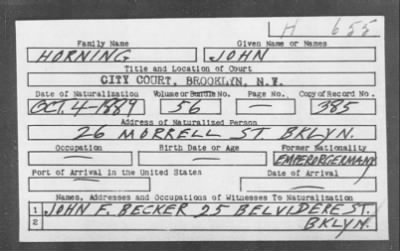 H 655
Family Name Given Name or Names
HORNING JOHN
Title and Location of Court
CITY COURT, BROOKLYN, N.Y.
Date of Naturalization Volume or Bundle No. Page No. Copy of Record No.
OCT. 4-1889 56 — 385
Address of Naturalized Person
26 MORRELL ST. BKLYN.
Occupation Birth Date or Age Former Nationality
— — EMPEROR GERMANY
Port of Arrival in the United States Date of Arrival
— —
Names, Addresses and Occupations of Witnesses To Naturalization
1 JOHN F. BECKER 25 BELVIDERE ST.
2 BKLYN.